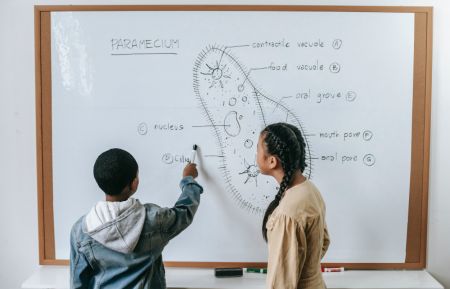 PARAMECIUM
contractile vacuole A
food vacuole B
oral groove E
C nucleus
mouth pore F
D cilia
oral pore G